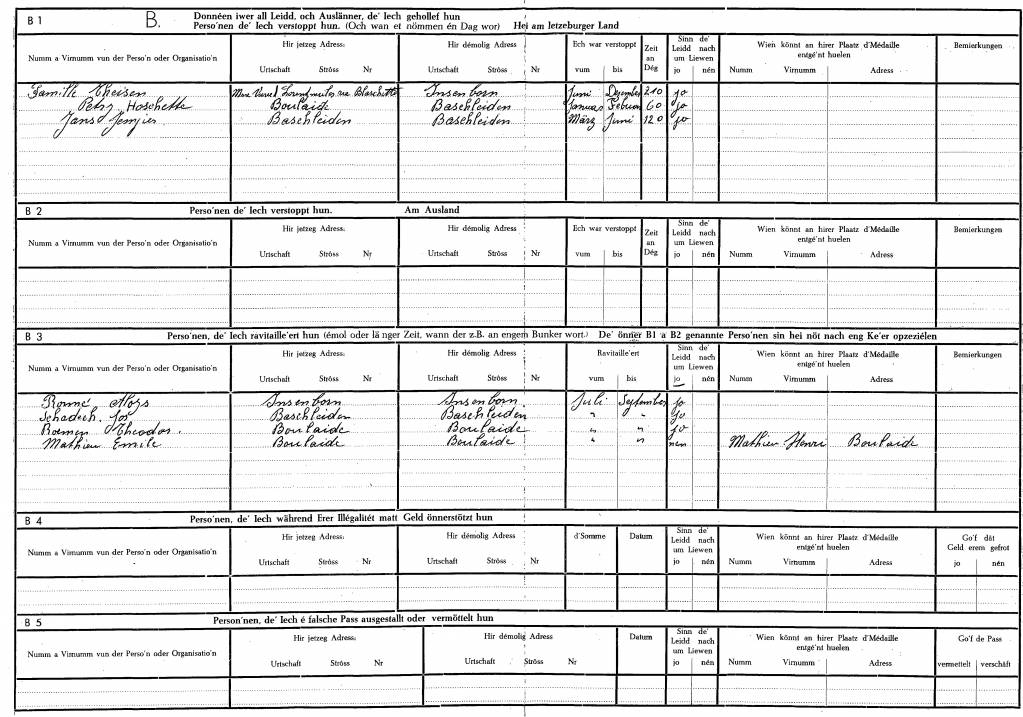 B 1 B. Donnéen iwer all Leidd, och Auslänner, de' Iech gehollef hun
Perso'nen de' Iech verstoppt hun. (Och wan et nömmen én Dag wor) Hei am letzeburger Land
Numm a Virnumm vun der Perso'n oder Organisatio'n
Hir jetzeg Adress:
Urtschaft Ströss Nr
Hir démolig Adress
Urtschaft Ströss Nr
Ech war verstoppt
vum bis
Zeit an Dég
Sinn de' Leidd nach um Liewen
jo nén
Wien könnt an hirer Plaatz d'Médaille entgé'nt huelen
Numm Virnumm Adress
Bemierkungen
Famill Theisen Insenborn Juni Dezember 210 jo
Petry Hoschette Boulaide Baschleiden Januar Februar 60 jo
Jans Baschleiden Baschleiden März Juni 120 jo
B 2 Perso'nen de' Iech verstoppt hun. Am Ausland
Numm a Virnumm vun der Perso'n oder Organisatio'n
Hir jetzeg Adress:
Urtschaft Ströss Nr
Hir démolig Adress
Urtschaft Ströss Nr
Ech war verstoppt
vum bis
Zeit an Dég
Sinn de' Leidd nach um Liewen
jo nén
Wien könnt an hirer Plaatz d'Médaille entgé'nt huelen
Numm Virnumm Adress
Bemierkungen
B 3 Perso'nen, de' Iech ravitaille'ert hun (émol oder länger Zeit, wann der z.B. an engem Bunker wort.) De' önner B1 a B2 genannte Perso'nen sin hei nöt nach eng Ke'er opzeziélen
Numm a Virnumm vun der Perso'n oder Organisatio'n
Hir jetzeg Adress:
Urtschaft Ströss Nr
Hir démolig Adress
Urtschaft Ströss Nr
Ravitaille'ert
vum bis
Sinn de' Leidd nach um Liewen
jo nén
Wien könnt an hirer Plaatz d'Médaille entgé'nt huelen
Numm Virnumm Adress
Bemierkungen
Aloys Insenborn Insenborn Juli September jo
Schadeck Jos Baschleiden Baschleiden " " jo
Theodor. Boulaide Boulaide " " jo
Mathieu Emile Boulaide Boulaide " " nen Mathieu Henri Boulaide
B 4 Perso'nen, de' Iech während Erer Illégalitét matt Geld önnerstötzt hun
Numm a Virnumm vun der Perso'n oder Organisatio'n
Hir jetzeg Adress:
Urtschaft Ströss Nr
Hir démolig Adress
Urtschaft Ströss Nr
d'Somme
Datum
Sinn de' Leidd nach um Liewen
jo nén
Wien könnt an hirer Plaatz d'Médaille entgé'nt huelen
Numm Virnumm Adress
Go'f dât Geld erem gefrot
jo nén
B 5 Person'nen, de' Iech é falsche Pass ausgestallt oder vermöttelt hun
Numm a Virnumm vun der Perso'n oder Organisatio'n
Hir jetzeg Adress:
Urtschaft Ströss Nr
Hir démolig Adress
Urtschaft Ströss Nr
Datum
Sinn de' Leidd nach um Liewen
jo nén
Wien könnt an hirer Plaatz d'Médaille entgé'nt huelen
Numm Virnumm Adress
Go'f de Pass
vermettelt verschäft